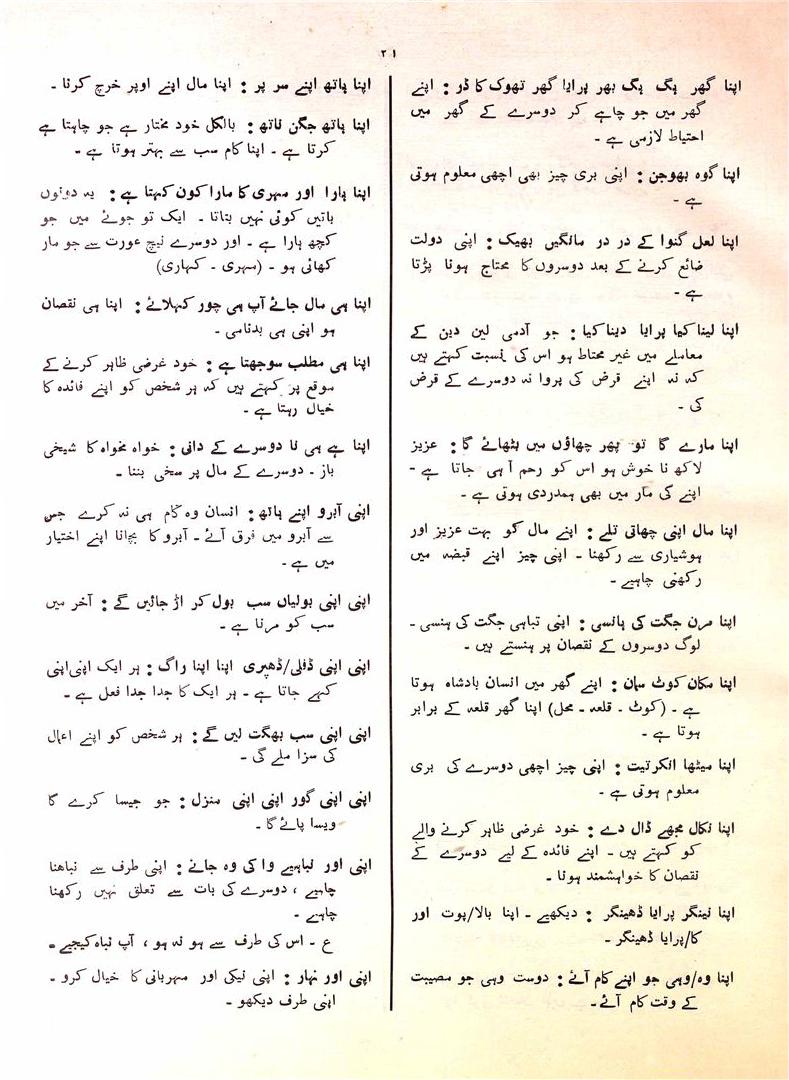 ۲۱
اپنا گھر ہگ ہگ بھر پرایا گھر تھوک کا ڈر : اپنے
گھر میں جو چاہے کر دوسرے کے گھر میں
احتیاط لازمی ہے ۔
اپنا گوہ بھوجن : اپنی بری چیز بھی اچھی معلوم ہوتی
ہے ۔
اپنا لعل گنوا کے در در مانگیں بھیک : اپنی دولت
ضائع کرنے کے بعد دوسروں کا محتاج ہونا پڑتا
ہے ۔
اپنا لینا کیا پرایا دینا کیا : جو آدمی لین دین کے
معاملے میں غیر محتاط ہو اس کی نسبت کہتے ہیں
کہ نہ اپنے قرض کی پروا نہ دوسرے کے قرض
کی ۔
اپنا مارے گا تو پھر چھاؤں میں بٹھائے گا : عزیز
لاکھ نا خوش ہو اس کو رحم آ ہی جاتا ہے ۔
اپنے کی مار میں بھی ہمدردی ہوتی ہے ۔
اپنا مال اپنی چھاتی تلے : اپنے مال کو بہت عزیز اور
ہوشیاری سے رکھنا ۔ اپنی چیز اپنے قبضہ میں
رکھنی چاہیے ۔
اپنا مرن جگت کی ہانسی : اپنی تباہی جگت کی ہنسی ۔
لوگ دوسروں کے نقصان پر ہنستے ہیں ۔
اپنا مکان کوٹ سمان : اپنے گھر میں انسان بادشاہ ہوتا
ہے ۔ (کوٹ ۔ قلعہ ۔ محل) اپنا گھر قلعہ کے برابر
ہوتا ہے ۔
اپنا میٹھا انکر تیت : اپنی چیز اچھی دوسرے کی بری
معلوم ہوتی ہے ۔
اپنا نکال مجھے ڈال دے : خود غرضی ظاہر کرنے والے
کو کہتے ہیں ۔ اپنے فائدہ کے لیے دوسرے کے
نقصان کا خواہشمند ہونا ۔
اپنا نینگر پرایا ڈھینگر : دیکھیے ۔ اپنا بالا/پوت اور
کا/پرایا ڈھینگر ۔
اپنا وہ/وہی جو اپنے کام آئے : دوست وہی جو مصیبت
کے وقت کام آئے ۔
اپنا ہاتھ اپنے سر پر : اپنا مال اپنے اوپر خرچ کرنا ۔
اپنا ہاتھ جگن ناتھ : بالکل خود مختار ہے جو چاہتا ہے
کرتا ہے ۔ اپنا کام سب سے بہتر ہوتا ہے ۔
اپنا ہارا اور مہری کا مارا کون کہتا ہے : یہ دونوں
باتیں کوئی نہیں بتاتا ۔ ایک تو جوئے میں جو
کچھ ہارا ہے ۔ اور دوسرے نیچ عورت سے جو مار
کھائی ہو ۔ (مہری ۔ کہاری)
اپنا ہی مال جائے آپ ہی چور کہلائے : اپنا ہی نقصان
ہو اپنی ہی بدنامی ۔
اپنا ہی مطلب سوجھتا ہے : خود غرضی ظاہر کرنے کے
موقع پر کہتے ہیں کہ ہر شخص کو اپنے فائدہ کا
خیال رہتا ہے ۔
اپنا ہے ہی نا دوسرے کے دانی : خواہ مخواہ کا شیخی
باز ۔ دوسرے کے مال پر سخی بننا ۔
اپنی آبرو اپنے ہاتھ : انسان وہ کام ہی نہ کرے جس
سے آبرو میں فرق آئے ۔ آبرو کا بچانا اپنے اختیار
میں ہے ۔
اپنی اپنی بولیاں سب بول کر اڑ جائیں گے : آخر میں
سب کو مرنا ہے ۔
اپنی اپنی ڈفلی/ڈھپری اپنا اپنا راگ : ہر ایک اپنی اپنی
کہے جاتا ہے ۔ ہر ایک کا جدا جدا فعل ہے ۔
اپنی اپنی سب بھگت لیں گے : ہر شخص کو اپنے اعمال
کی سزا ملے گی ۔
اپنی اپنی گور اپنی اپنی منزل : جو جیسا کرے گا
ویسا پائے گا ۔
اپنی اور نباہیے وا کی وہ جانے : اپنی طرف سے نباہنا
چاہیے ، دوسرے کی بات سے تعلق نہیں رکھنا
چاہیے ۔
ع ۔ اس کی طرف سے ہو نہ ہو ، آپ نباہ کیجیے ۔
اپنی اور نہار : اپنی نیکی اور مہربانی کا خیال کرو ۔
اپنی طرف دیکھو ۔